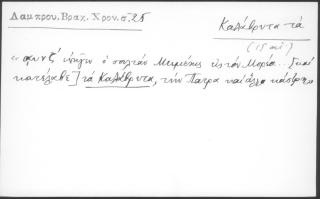 Λαμπρου. Βραχ. Χρον. σ. 25
Καλάβρυτα τά
(15 αἰ)
ὑπῆγεν ὁ σουλτὰν Μεμέτης εἰς τὸν Μορέα.. [καὶ
κατέλαβε] τὰ Καλάβρυτα, τὴν Πάτρα καὶ ἄλλα κάστρη»